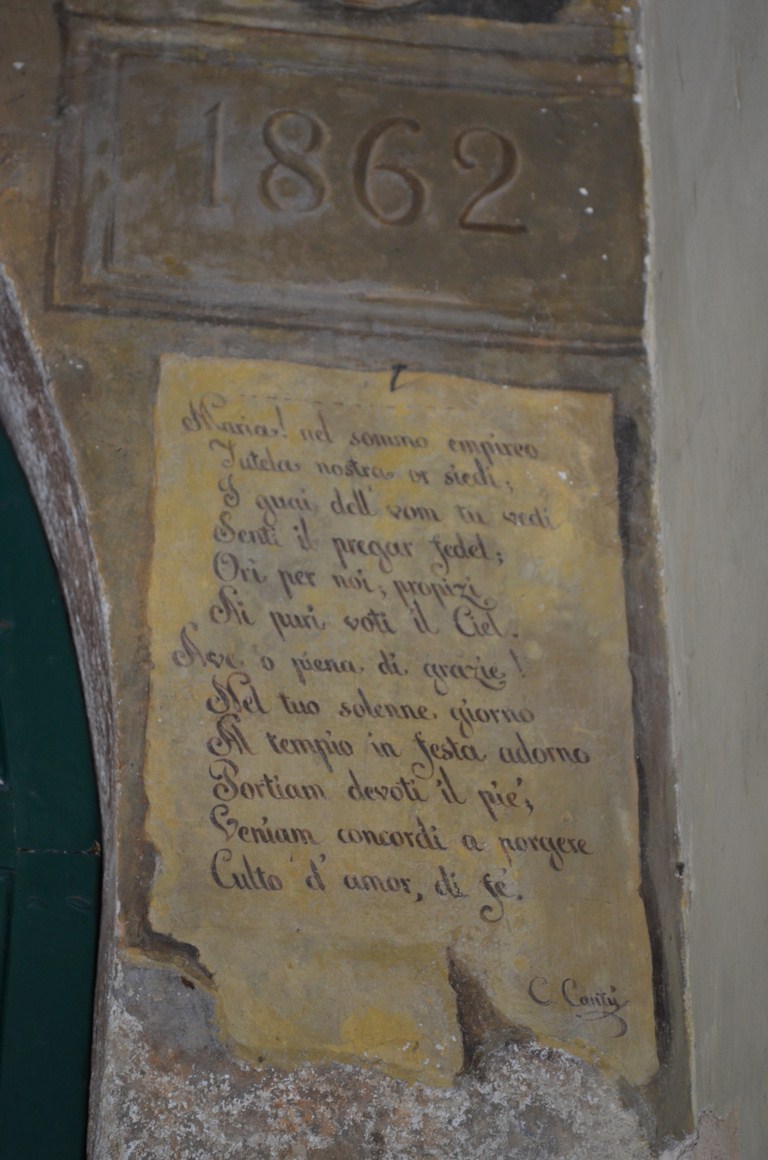 1862
Maria! nel sommo empireo
Tutela nostra or siedi;
I guai dell' uom tu vedi
Senti il pregar fedel;
Ori per noi, propizi
Ai puri voti il Ciel.
Ave o piena di grazie!
Nel tuo solenne giorno
Al tempio in festa adorno
Portiam devoti il piè;
Veniam concordi a porgere
Culto d' amor, di fè.
C. Cantù